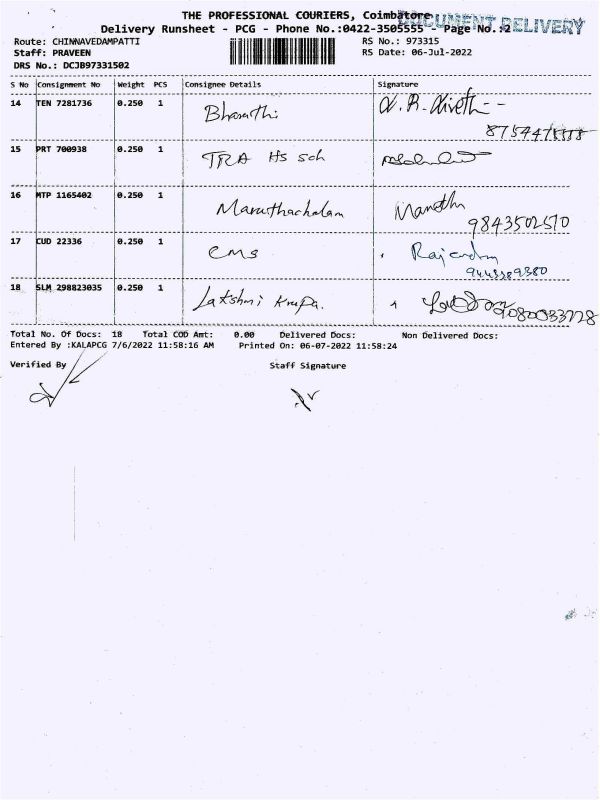 THE PROFESSIONAL COURIERS, Coimbatore
DOCUMENT DELIVERY
Delivery Runsheet - PCG - Phone No.:0422-3505555 - Page No.:2
Route: CHINNAVEDAMPATTI
RS No.: 973315
Staff: PRAVEEN
RS Date: 06-Jul-2022
DRS No.: DCJB97331502
S No Consignment No Weight PCS Consignee Details Signature
14 TEN 7281736 0.250 1 Bharathi
15 PRT 700938 0.250 1 TRA HS sch
16 MTP 1165402 0.250 1 Maruthachalam
9843502570
17 CUD 22336 0.250 1 CMS
18 SLM 298823035 0.250 1 Lakshmi Krupa.
Total No. Of Docs: 18 Total COD Amt: 0.00 Delivered Docs: Non Delivered Docs:
Entered By :KALAPCG 7/6/2022 11:58:16 AM Printed On: 06-07-2022 11:58:24
Verified By Staff Signature